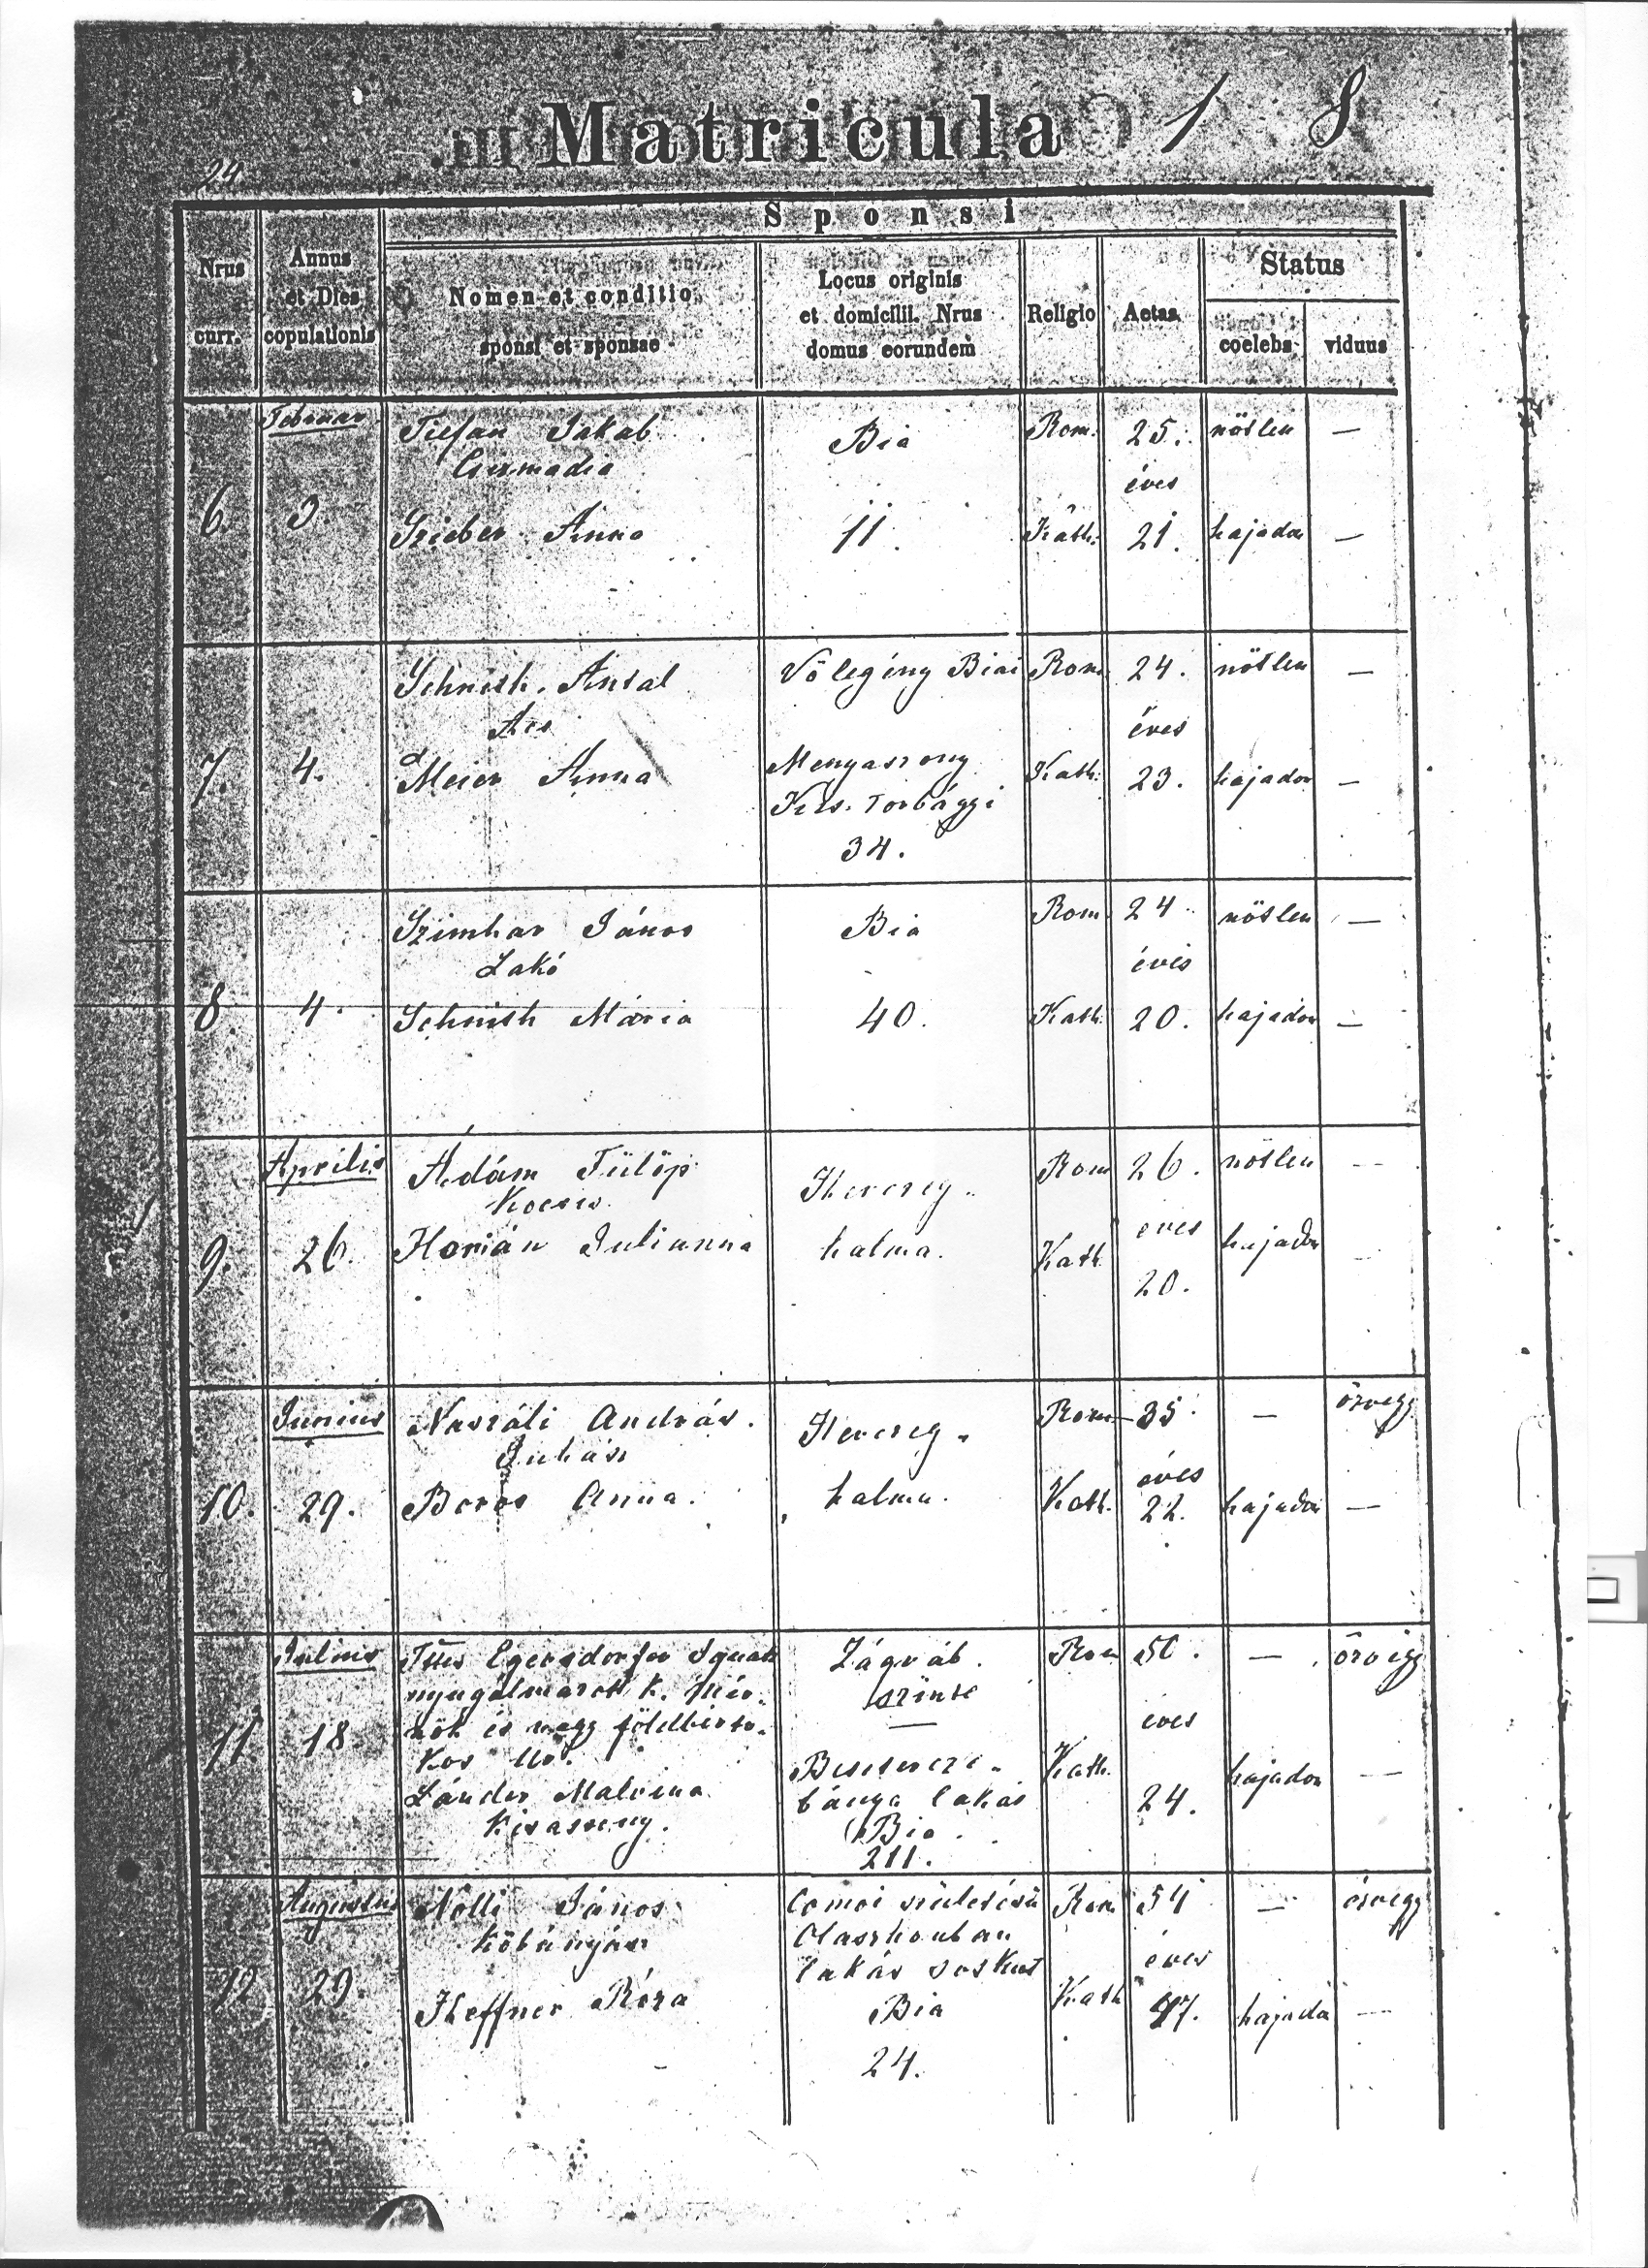 Matricula 1 8
24
Sponsi
Nrus
curr.
Annus
et Dies
copulationis
Nomen et conditio
sponsi et sponsae
Locus originis
et domicilii. Nrus
domus eorundem
Religio
Aetas
Status
coelebs
viduus
Februar
6. 3.
Tiefan Jakab
Csizmadia
Szieber Anna
Bia
11.
Rom.
Kath.
25.
éves
21.
nőtlen —
hajadon —
7. 4.
Schmidt Antal
Acs
Meier Anna
Vőlegény Biai
Menyaszony
Kis. Torbágyi
34.
Rom
Kath.
24.
éves
23.
nőtlen —
hajadon —
8 4.
Szimhar János
Lakó
Schmidt Mária
Bia
40.
Rom
Kath.
24
éves
20.
nőtlen —
hajadon —
Aprilis
9. 26.
Ádám Fülöp
Kocsis
Florián Julianna
Herczeg-
halma.
Rom
Kath
26.
éves
20.
nőtlen —
hajadon —
Junius
10. 29.
Naszáli András.
Juhász
Boros Anna.
Herczeg-
halma.
Rom
Kath.
35
éves
22.
— özvegy
hajadon —
Julius
11 18
Egersdorfer Ignatz
nyugalmazott k. mér-
nök és nagy földbirto-
kos Ur.
Lánder Malvina
Kisasszony.
Zágráb.
szinte
—
Beszercze-
bánya lakás
Bia
211.
Rom
Kath.
50.
éves
24.
— özvegy
hajadon —
Augustus
12 29.
Nolli János
Kőbányász
Heffner Róza
Comoi születésű
Olaszhonban
lakás Soskut
Bia
24.
Rom
Kath
54
éves
47.
— özvegy
hajadon —